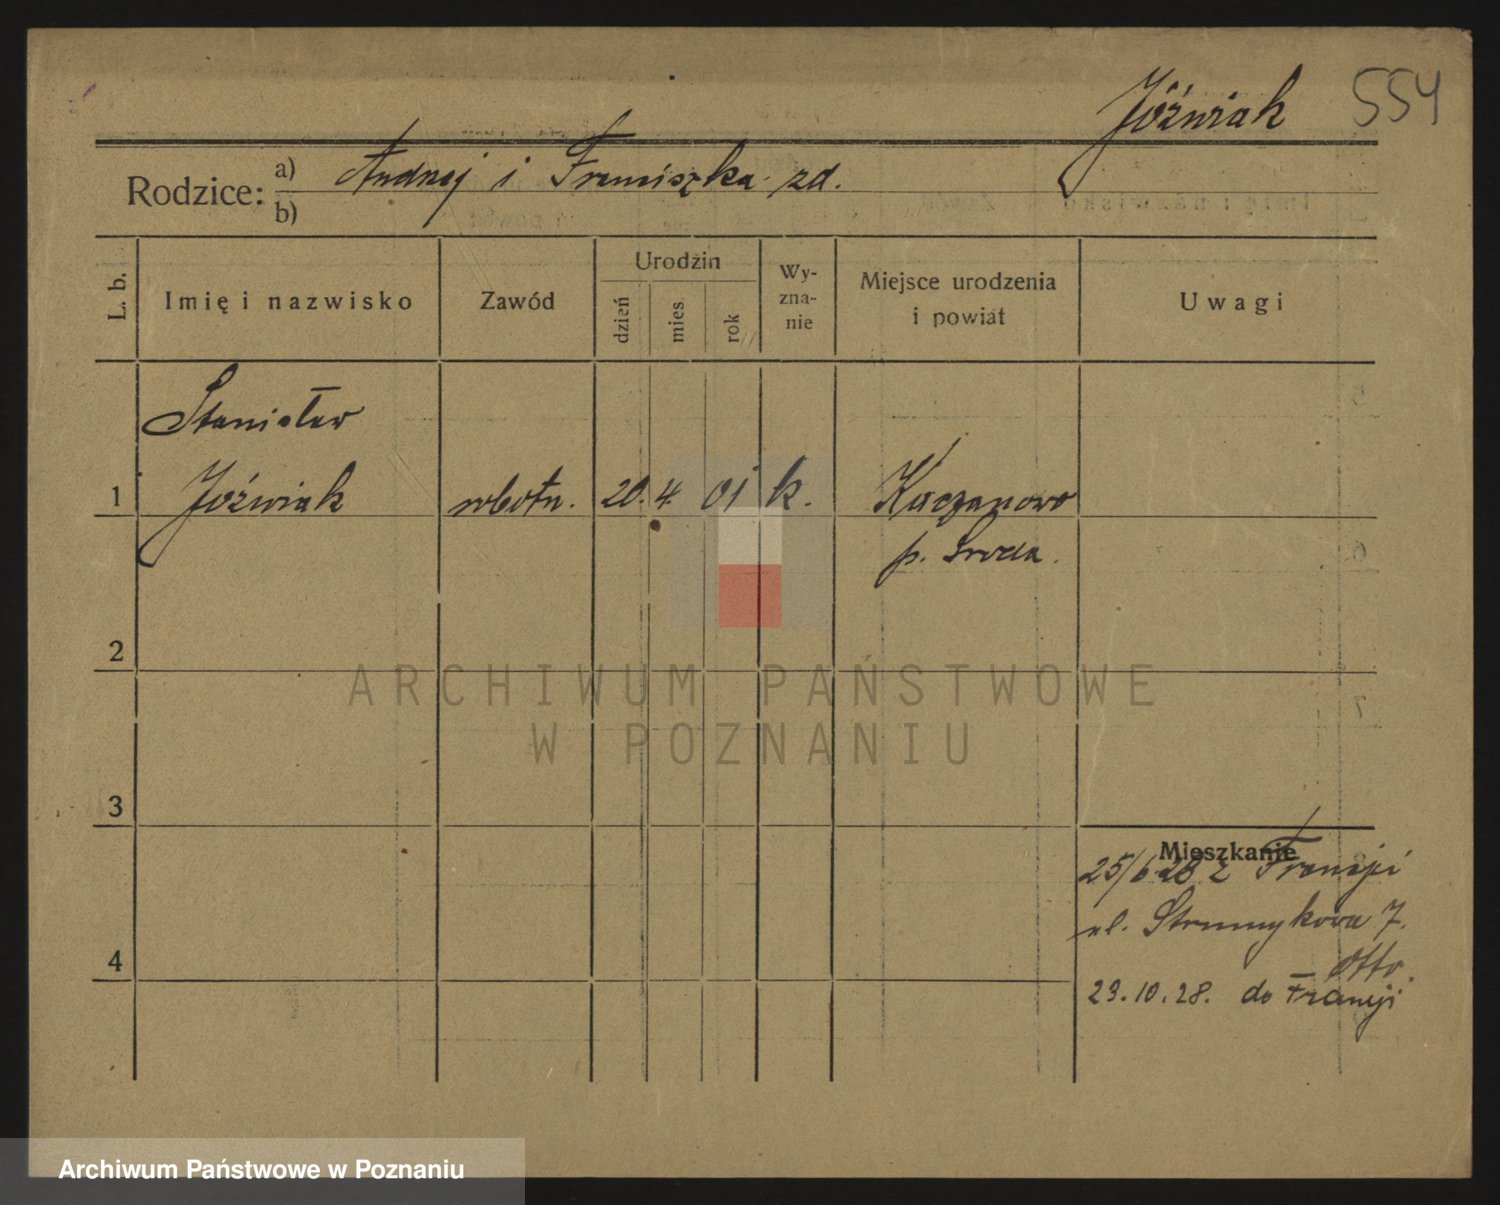 Jóźwiak 554
Rodzice: a) Andrzej i Franciszka zd.
b)
L. b. Imię i nazwisko Zawód Urodzin dzień mies rok Wy-zna-nie Miejsce urodzenia i powiat Uwagi
Stanisław
1 Jóźwiak robotn. 20. 4. 01 k. Kaczanowo
p. Środa.
2
ARCHIWUM PAŃSTWOWE
W POZNANIU
3
Mieszkanie
25/6 28 z Francji
ul. Strumykowa 7.
Otto.
4
29.10.28. do Francji
Archiwum Państwowe w Poznaniu